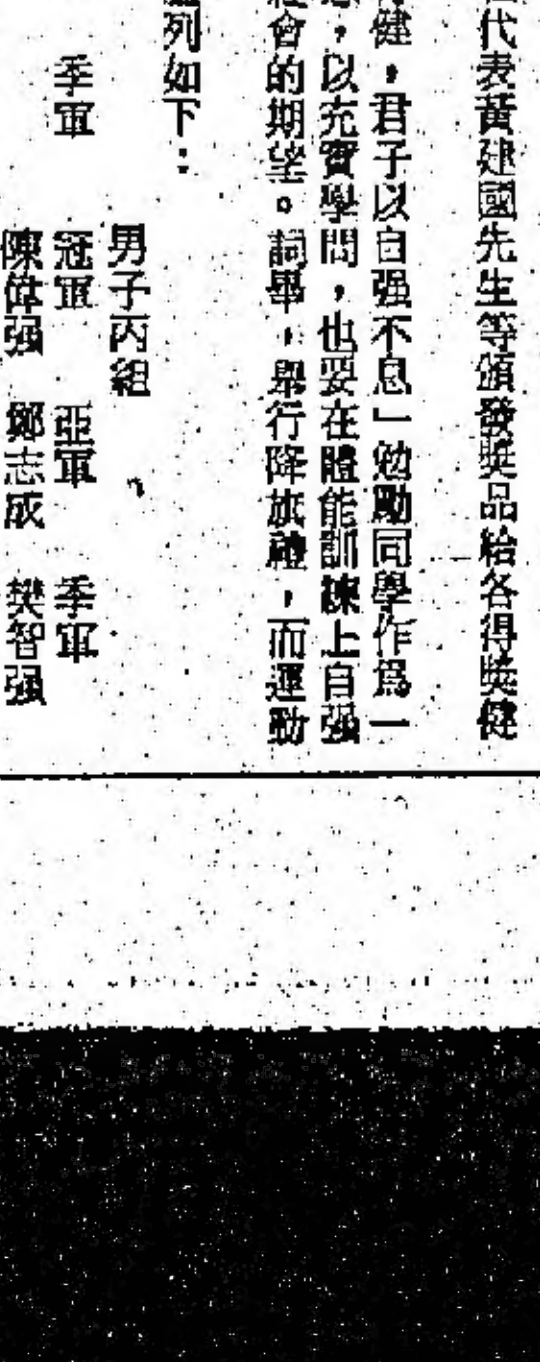 代表黃建國先生等頒發獎品給各得獎健
健，君子以自强不息」勉勵同學作爲一
，以充實學問，也要在體能訓練上自强
會的期望。詞畢，舉行降旗禮，而運動
列如下：
男子丙組
季軍　冠軍　亞軍　季軍
陳偉强　鄭志成　樊智强